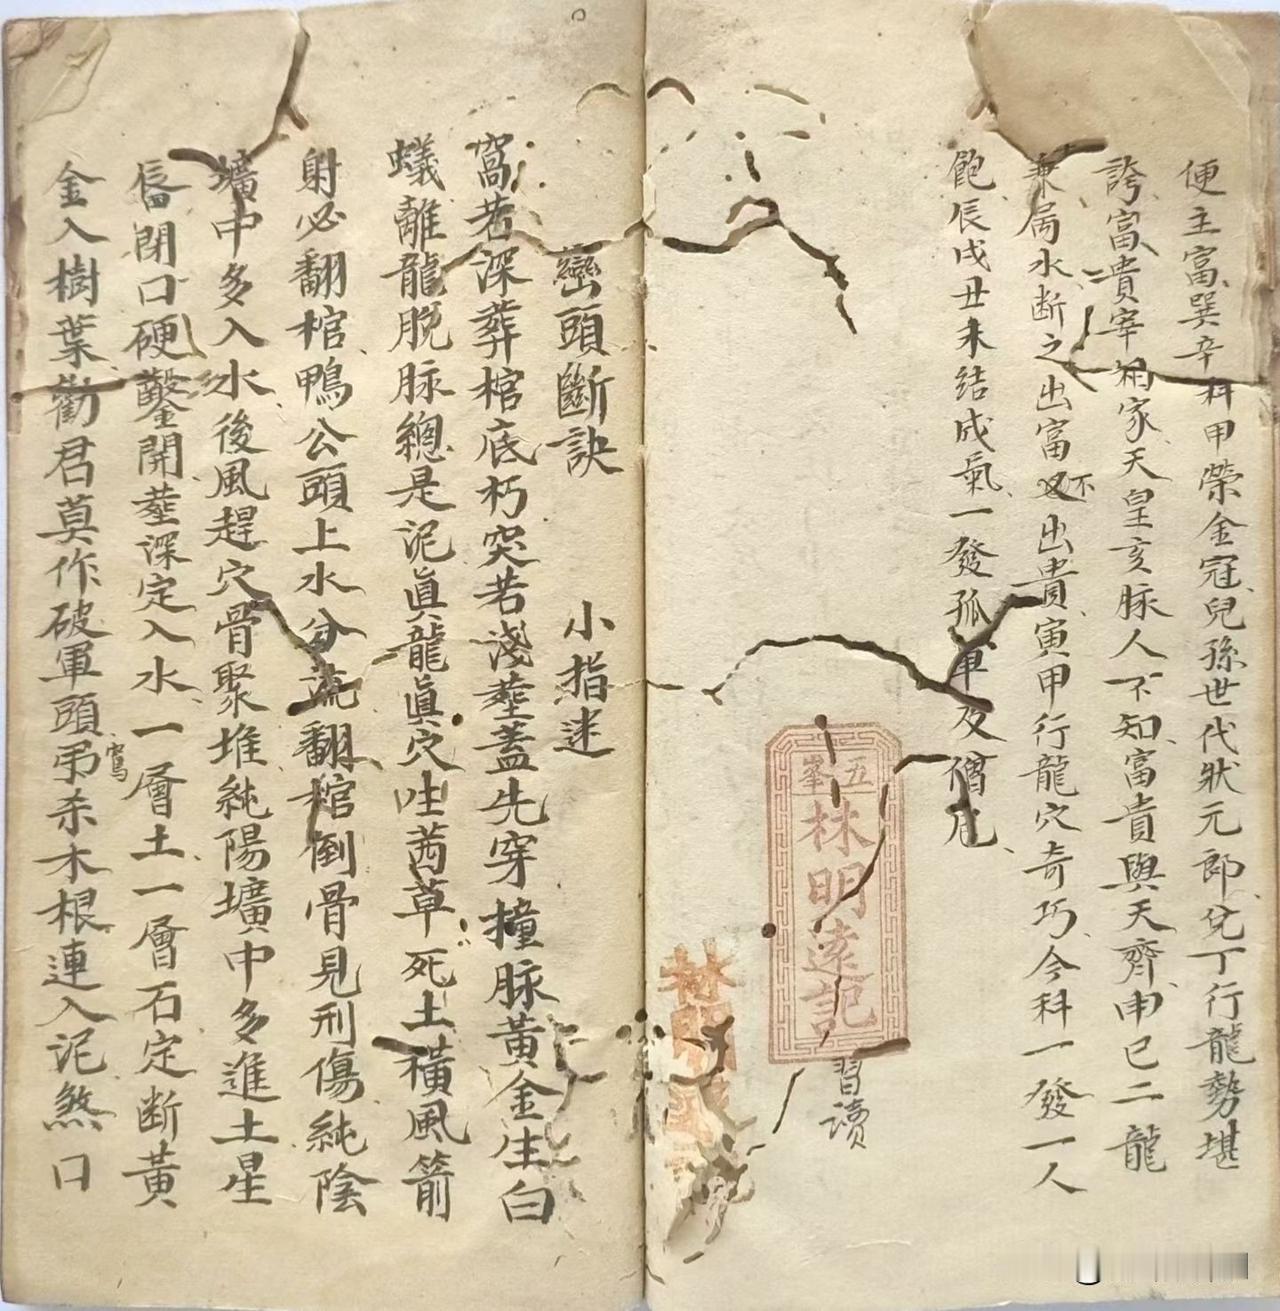 便主富巽辛科甲榮金冠兒孫世代狀元郎兌丁行龍勢堪
誇富貴宰相家天皇亥脉人不知富貴與天齊申巳二龍
兼属水断之出富又不出貴寅甲行龍穴奇巧今科一發一人
飽辰戌丑未結成氣一發孤單及僧尼
五峯
林明遠記
習讀
林明遠
巒頭斷訣 小指迷
窩若深葬棺底朽突若淺塟蓋先穿撞脉黃金生白
蟻離龍脫脉總是泥真龍真穴吐茜草死土橫風箭
射必翻棺鴨公頭上水分流翻棺倒骨見刑傷純陰
壙中多入水後風趕穴骨聚堆純陽壙中多進土星
唇閉口硬鑿開塟深定入水一層土一層石定断黃
金入樹葉勸君莫作破軍頭弔杀木根連入泥煞口
寫